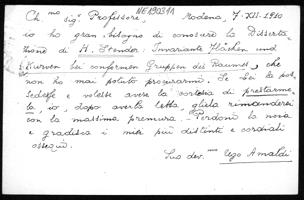 NE190311
Ch.mo sig. Professore, Modena, 7-XII-1910
io ho gran bisogno di conoscere la Disserta
zione di H. Stender, Invariante Flächen und
Kurven bei conformen Gruppen des Raumes, che
non ho mai potuto procurarmi. Se Lei la pos
sedesse e volesse avere la cortesia di prestarme
la, io, dopo averla letta, gliela rimanderei
con la massima premura. Perdoni la noia
e gradisca i miei più distinti e cordiali
ossequi.
Suo dev.mo Ugo Amaldi